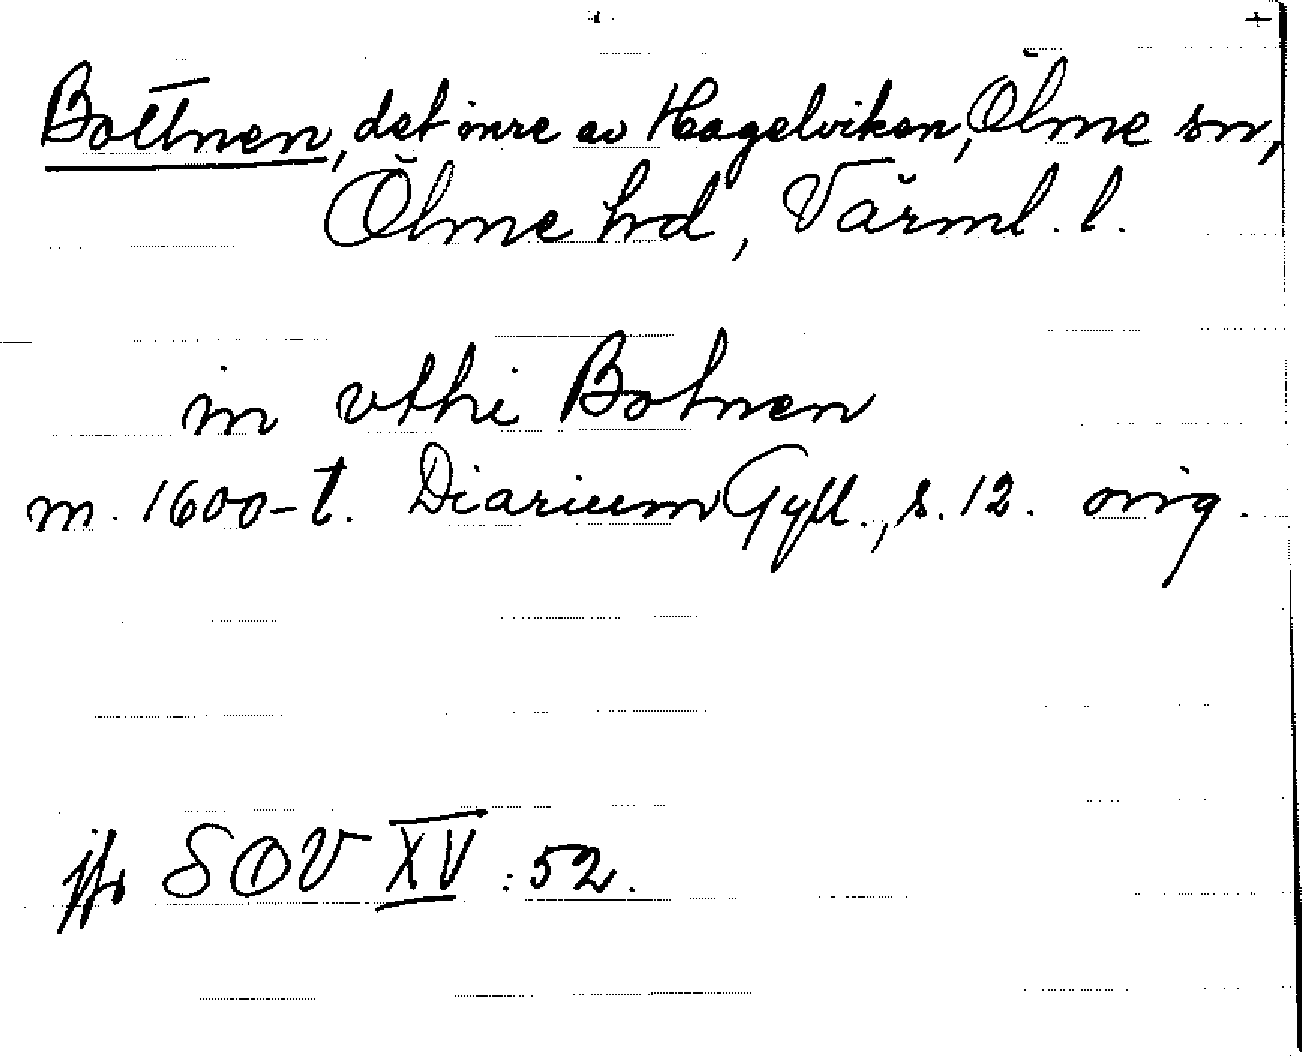 Bottnen, det inre av Hagelviken, Ölme sn,
Ölme hd, Värml. l.
in vthi Botnen
m. 1600-t. Diarium Gyll., s. 12. orig.
jfr SOV XV : 52.